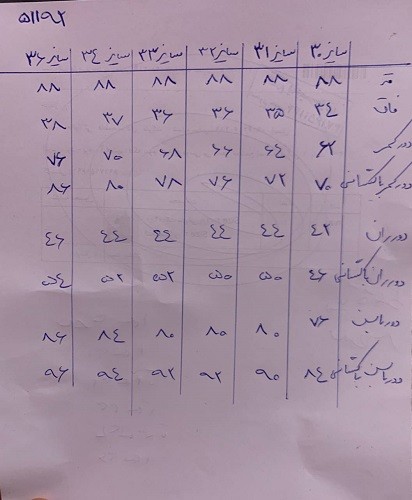 ۵۱۱۹۲
سایز ۳۰ سایز ۳۱ سایز ۳۲ سایز ۳۳ سایز ۳۴ سایز ۳۶
قد ۸۸ ۸۸ ۸۸ ۸۸ ۸۸ ۸۸
فاق ۳۴ ۳۵ ۳۶ ۳۶ ۳۷ ۳۸
دور کمر ۶۲ ۶۴ ۶۶ ۶۸ ۷۰ ۷۶
دور کمر با کشسانی ۷۰ ۷۲ ۷۶ ۷۸ ۸۰ ۸۶
دور ران ۴۲ ۴۴ ۴۴ ۴۴ ۴۴ ۴۶
دور ران با کشسانی ۴۶ ۵۰ ۵۰ ۵۲ ۵۲ ۵۴
دور باسن ۷۶ ۸۰ ۸۰ ۸۰ ۸۴ ۸۶
دور باسن با کشسانی ۸۴ ۹۰ ۹۲ ۹۲ ۹۴ ۹۶